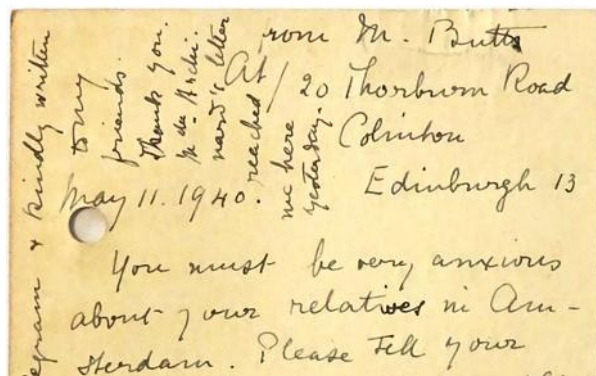 rom M. Butts
At / 20 Thorburn Road
Colinton
Edinburgh 13
May 11. 1940.
You must be very anxious
about your relatives in Am-
sterdam. Please tell your
egram & kindly written
to my
friends.
Thank you.
M de
nard's letter
reached
me here
yesterday.